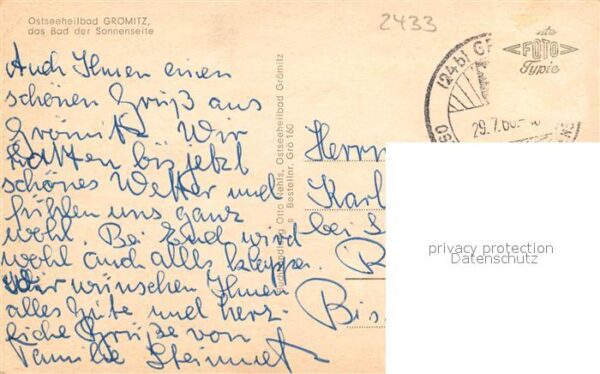 Ostseeheilbad GRÖMITZ,
das Bad der Sonnenseite
2433
Auch Ihnen einen
schönen Gruß aus
Grömitz. Wir
hatten bis jetzt
schönes Wetter und
fühlen uns ganz
wohl. Bei Euch wird
wohl auch alles klappen.
Wir wünschen Ihnen
alles Gute und herz-
liche Grüße von
Familie
Otto Nehls, Ostseeheilbad Grömitz
Bestellnr. Grö 160
(24b) G
29.7.60.
FOTO
Typie
Herrn
Karl
bei
Bis
privacy protection
Datenschutz